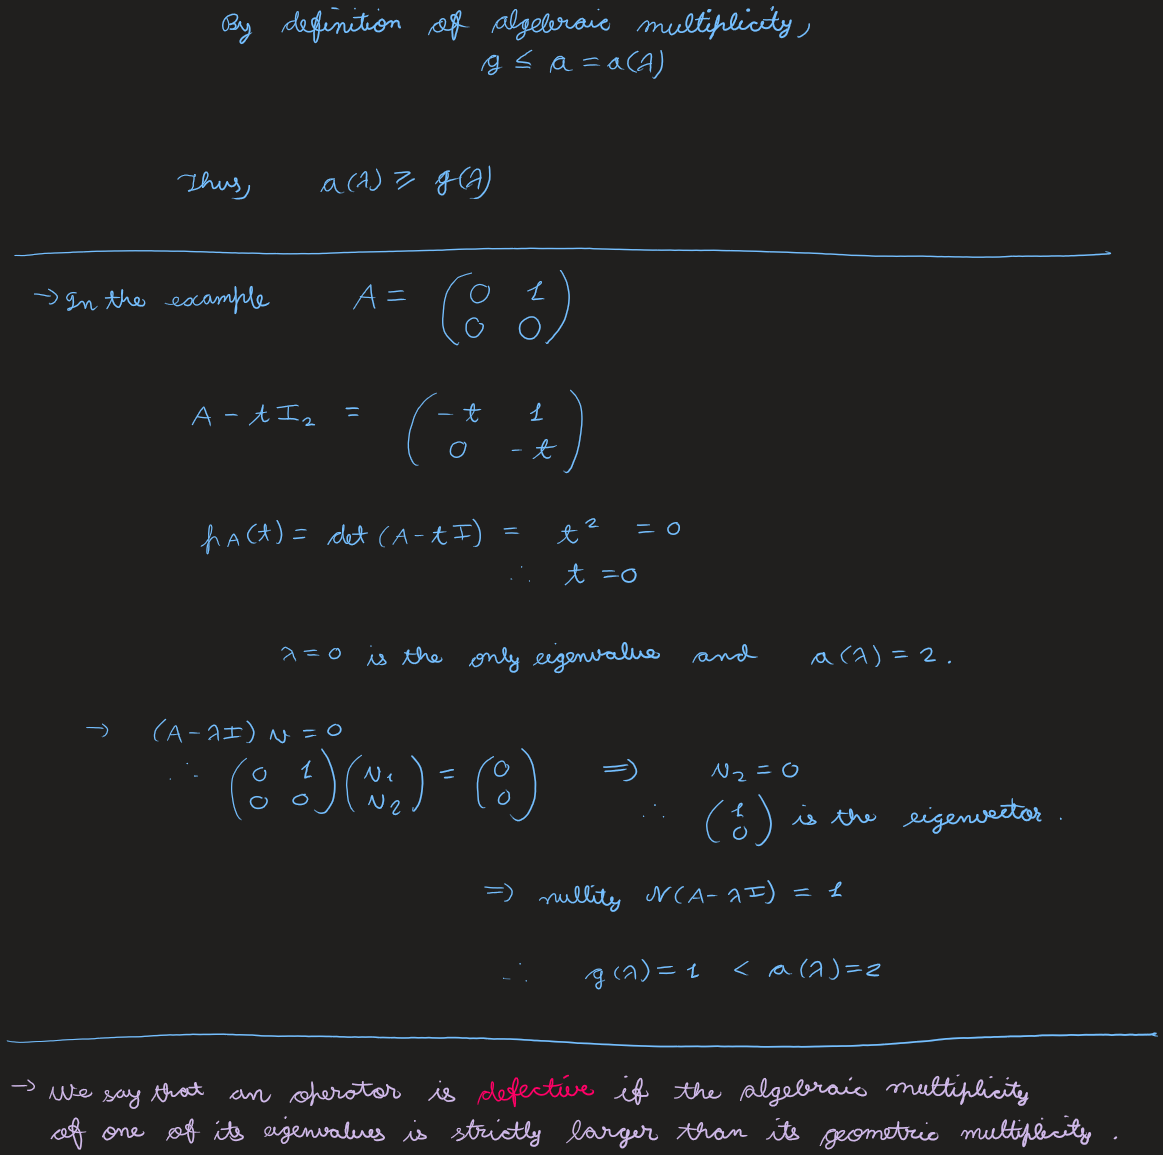 By definition of algebraic multiplicity,
g ≤ a = a(λ)
Thus, a(λ) ≥ g(λ)
→ In the example A = (0 1
0 0)
A - tI₂ = (-t 1
0 -t)
pA(t) = det(A-tI) = t² = 0
∴ t = 0
λ = 0 is the only eigenvalue and a(λ) = 2.
→ (A-λI) v = 0
∴ (0 1
0 0)(v₁
v₂) = (0
0) ⇒ v₂ = 0
∴ (1
0) is the eigenvector.
⇒ nullity N(A-λI) = 1
∴ g(λ) = 1 < a(λ) = 2
→ We say that an operator is defective if the algebraic multiplicity
of one of its eigenvalues is strictly larger than its geometric multiplicity.